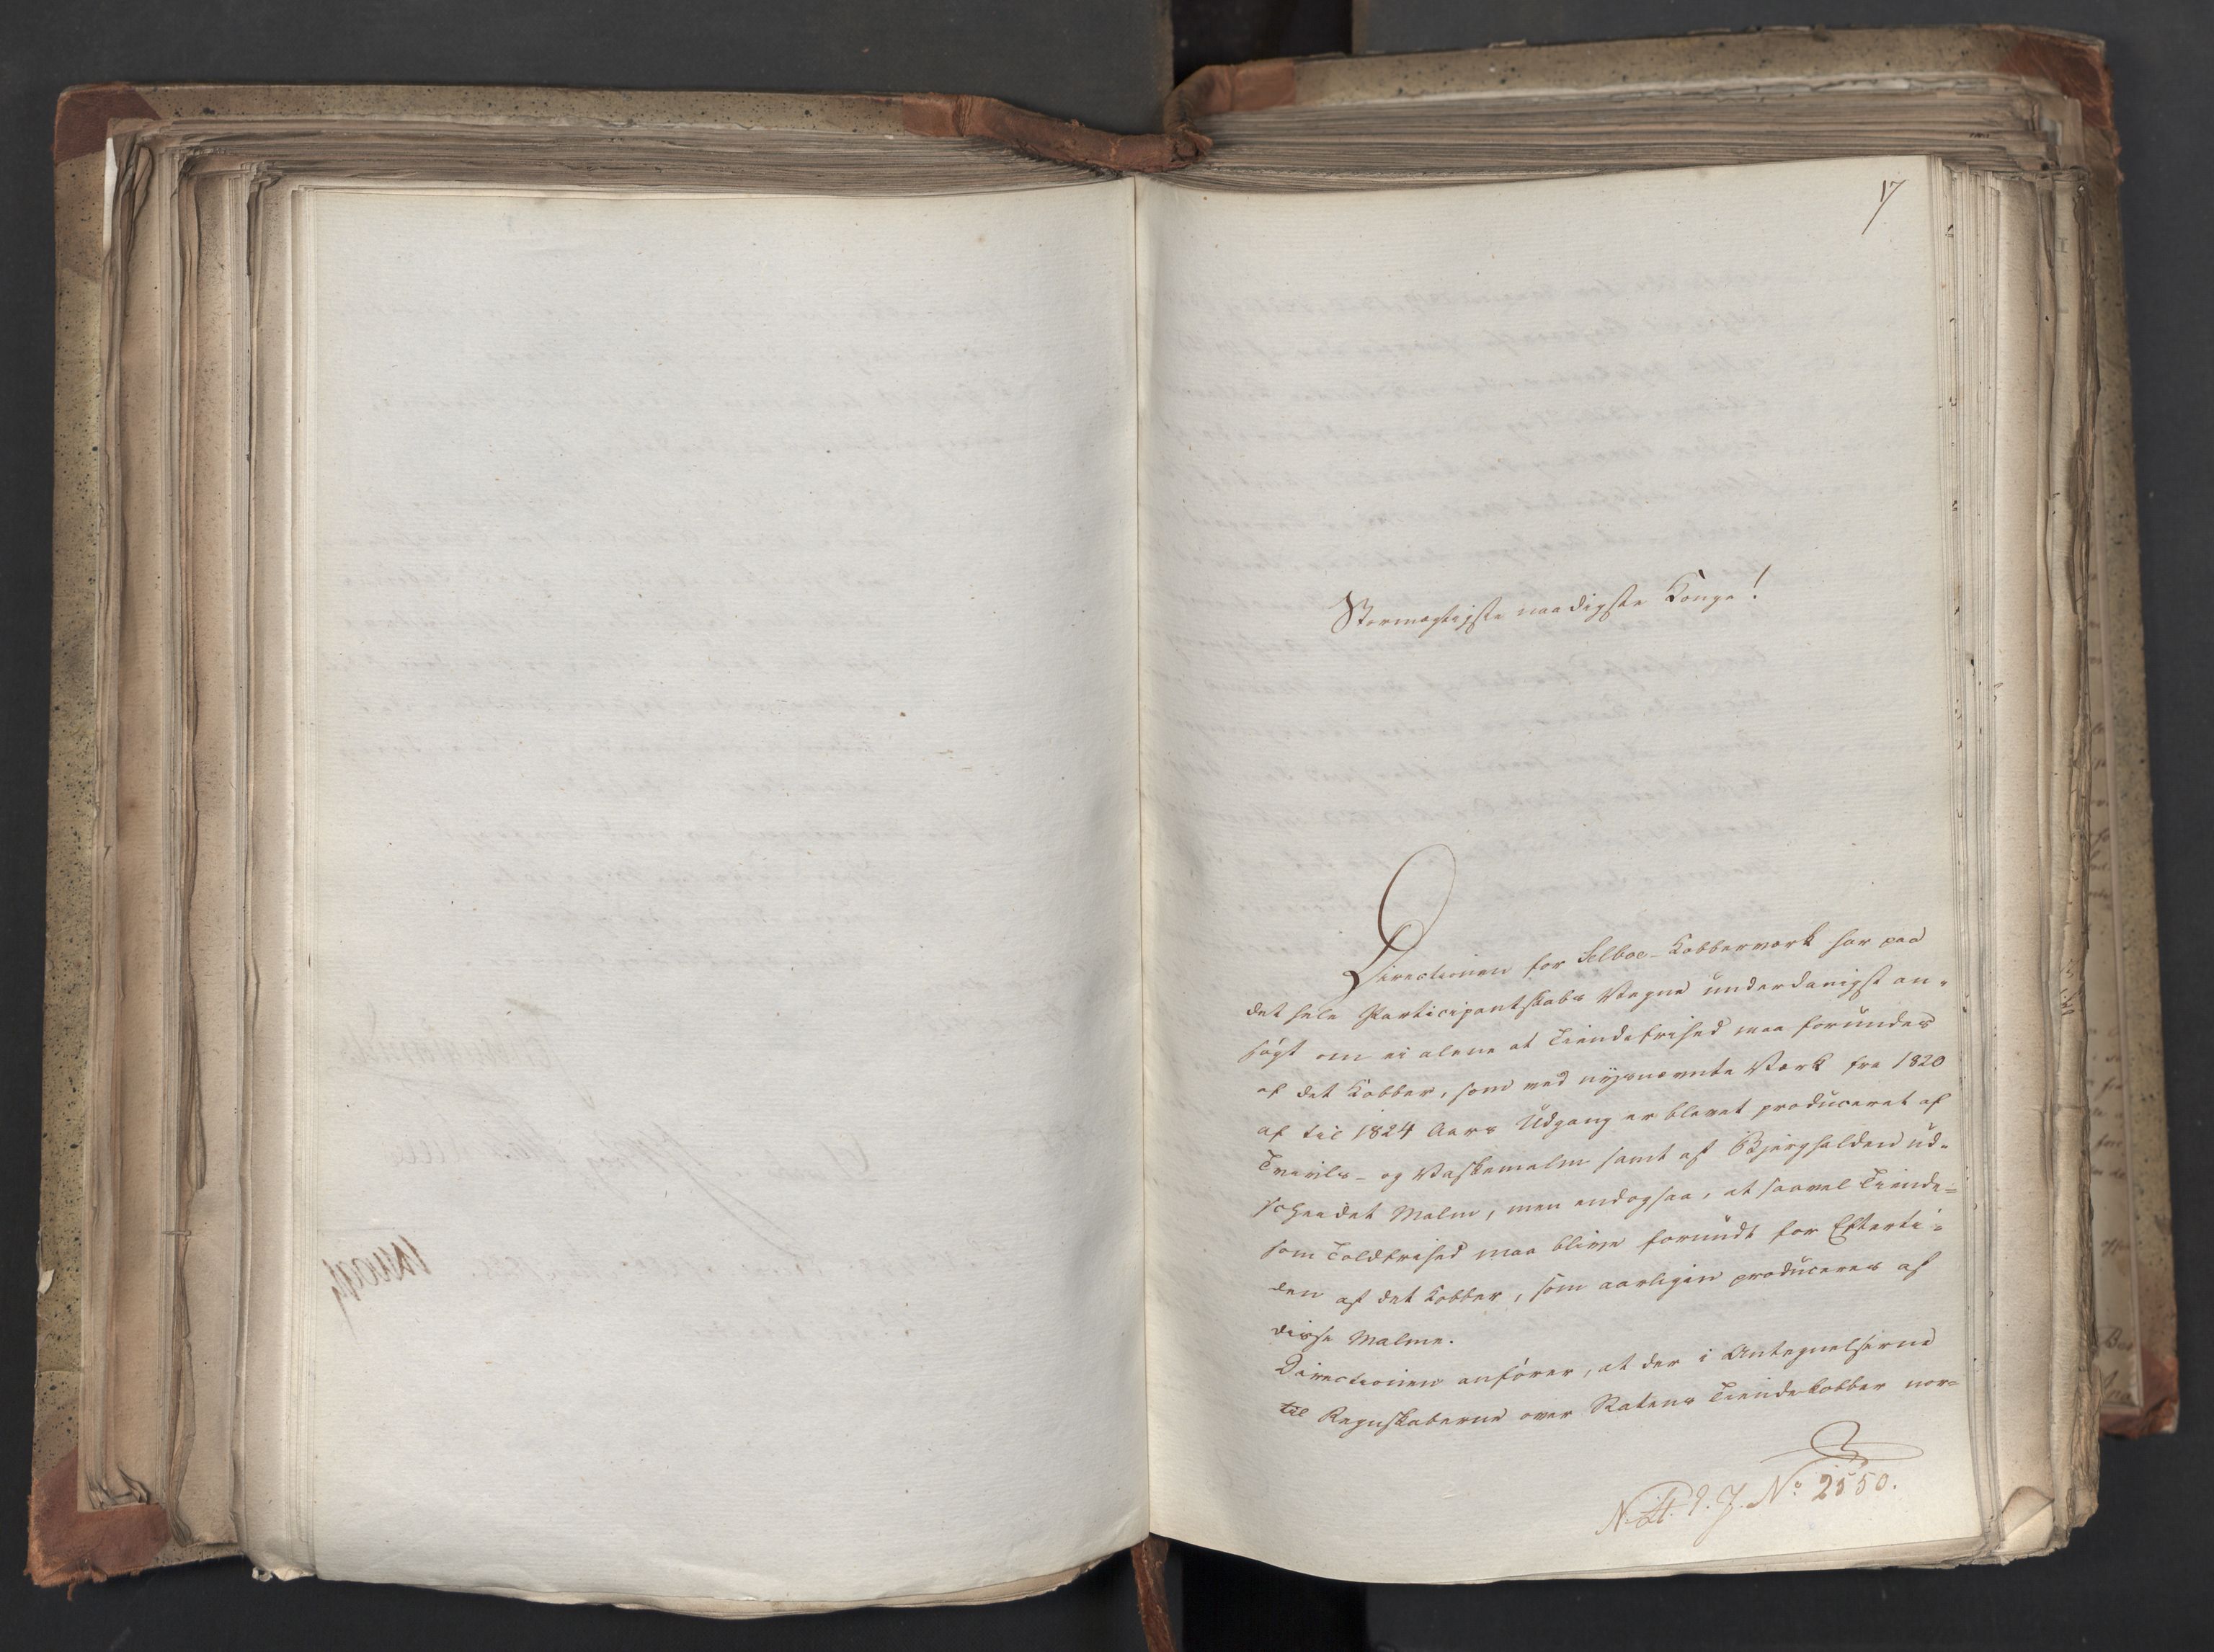 17
Stormægtigste naadigste Konge!
Directionen for Selboe-Kobberværk har paa
det hele Participantskabs Vegne underdanigst an-
søgt om ei alene at Tiendefrihed maa forundes
af det Kobber, som ved nysnævnte Værk fra 1820
af til 1824 Aars Udgang er blevet produceret af
Tvivls- og Vaskemalm samt af Bjerghalden ud-
scheedet Malm, men endogsaa, at saavel Tiende-
som Toldfrihed maa blive forundt for Efterti-
den af det Kobber, som aarligen produceres af
disse Malme.
Directionen anfører, at der i Antegnelserne
til Regnskaberne over Statens Tiendekobber nor-
No 2550.